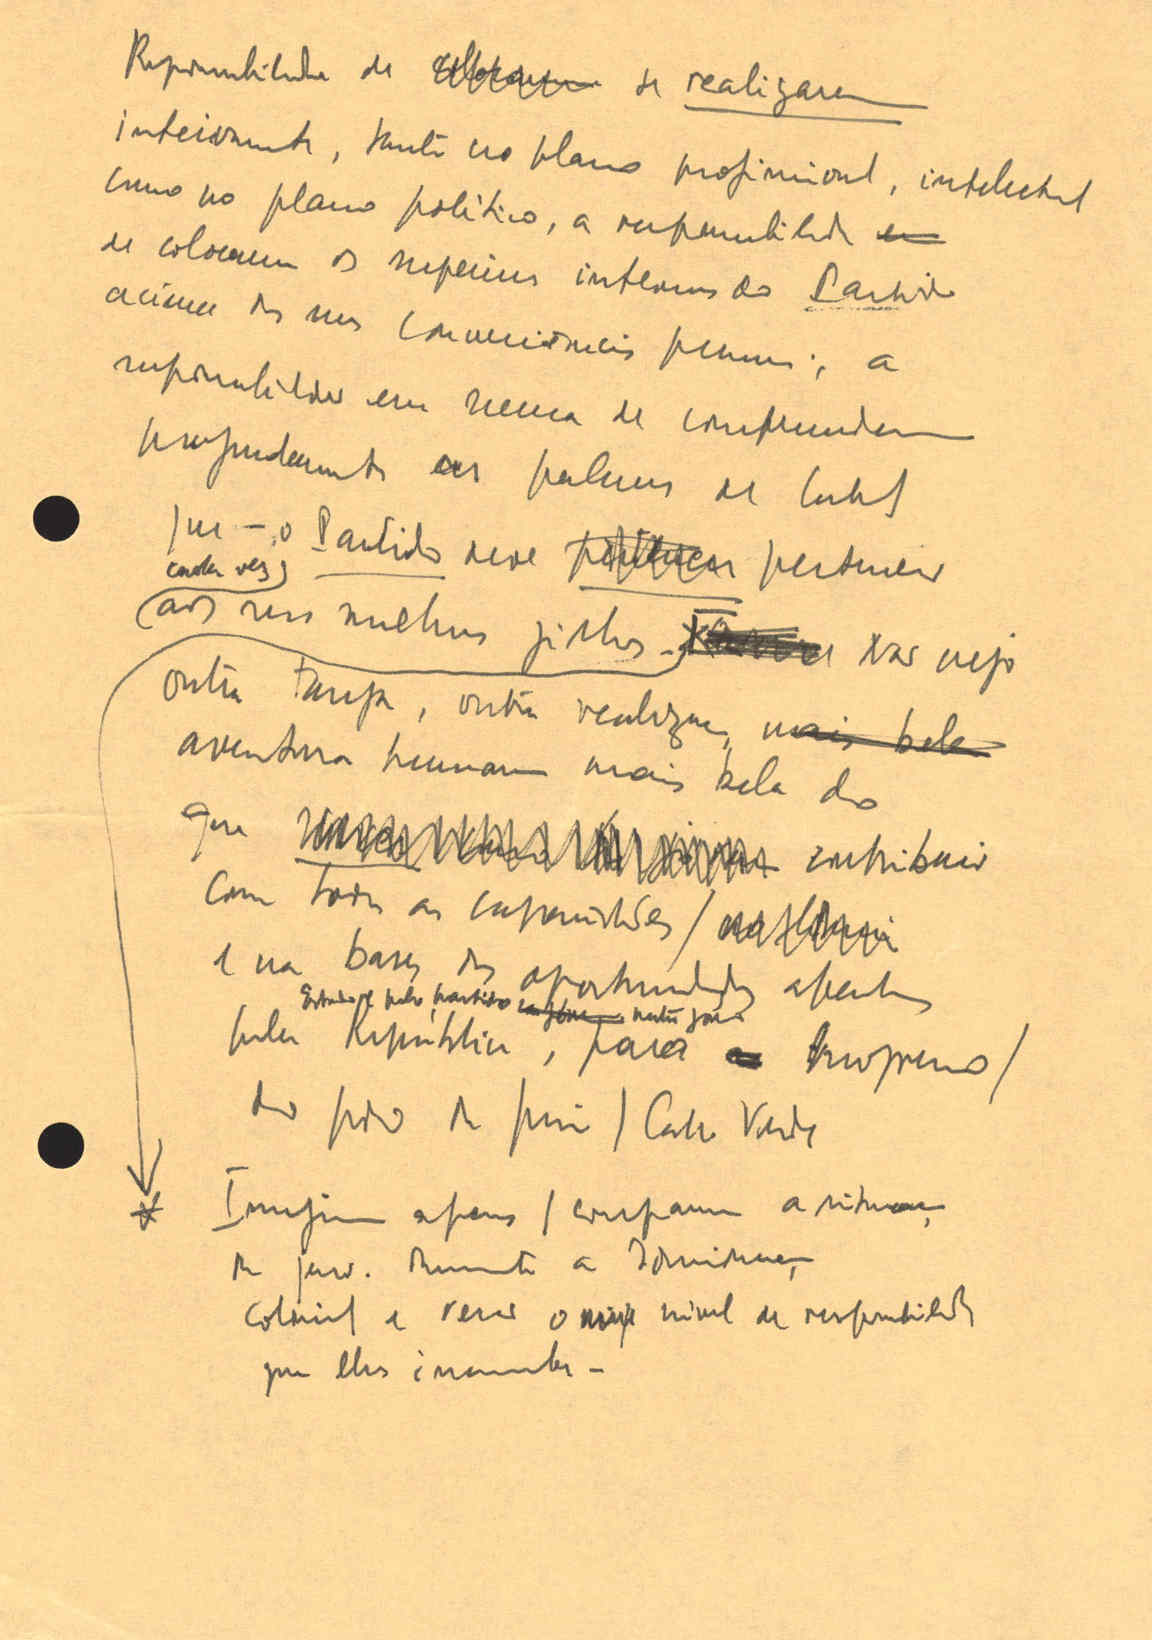 Responsabilidade de se realizarem
inteiramente, tanto no plano profissional, intelectual
como no plano político, a responsabilidade
de colocarem os superiores interesses do Partido
acima das suas conveniências pessoais; a
responsabilidade em suma de compreenderem
profundamente as palavras de Cabral
que - o Partido deve pertencer
cada vez
aos seus melhores filhos - Não vejo
outra tarefa, outra realização, mais bela
aventura humana mais bela do
que contribuir
com todas as capacidades /
e na base das oportunidades abertas
pela República, para o progresso /
do povo de / Cabo Verde
* Imaginem apenas / comparem a situação
da juv. durante a dominação
colonial e verão o nível de responsabilidade
que lhes incumbe -